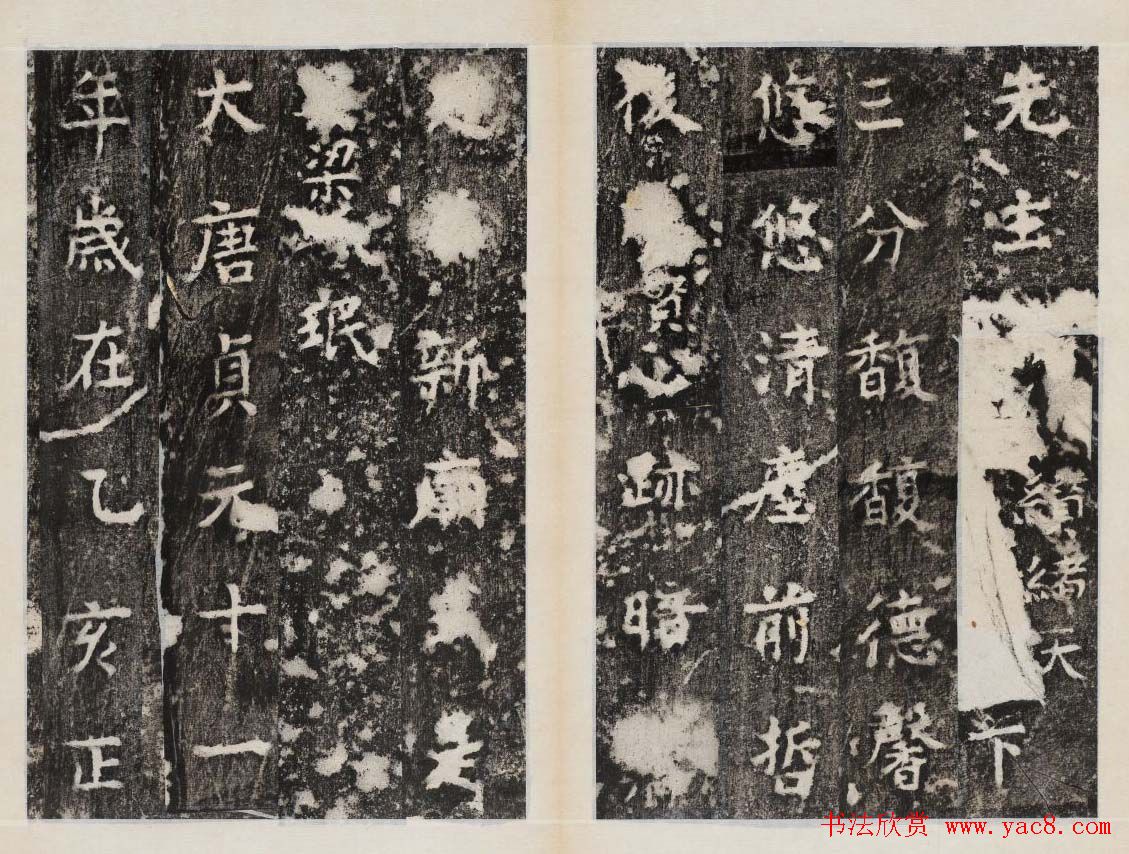 先主
緒天下
三分馥馥德馨
悠悠清塵前哲
後賢心跡暗
新廟是
梁珉
大唐貞元十一
年歲在乙亥正
书法欣赏 www.yac8.com